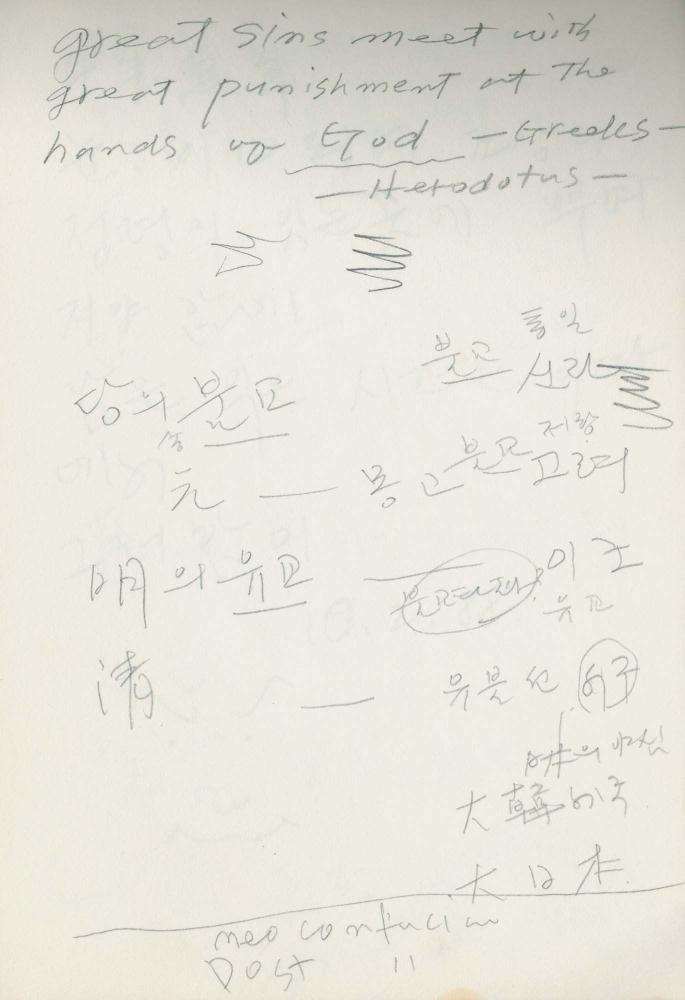 great sins meet with
great punishment at The
hands of God —Greeks—
—Herodotus—
통일
당의 불교 불교 신라
송
元 — 몽고 불교 고려
明의 유교 — 이조
유교
清 — 유불선
大韓
大日本
neo confucian
Post 11